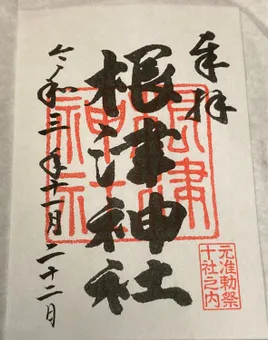 奉拝
根津神社
令和三年十一月二十二日
根津
神社
元准勅祭
十社之内